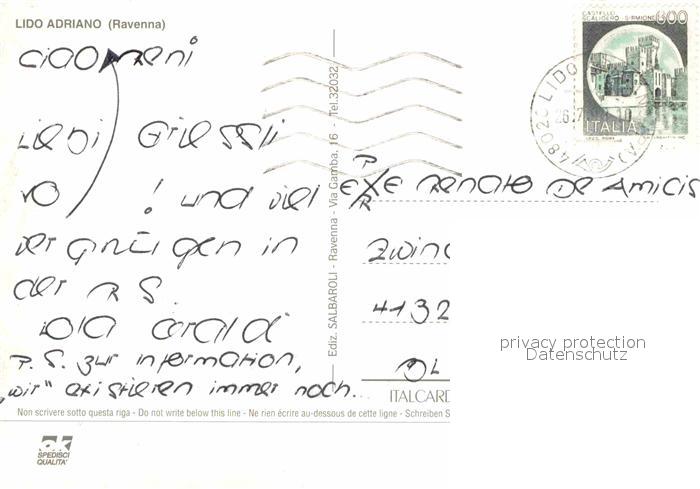 LIDO ADRIANO (Ravenna)
ciao
Liebi Grüessli
vo ! und viel
vergnügen in
der RS.
P.S. zur Information,
„wir" existieren immer noch...
Ediz. SALBAROLI - Ravenna - Via Gamba, 16 - Tel. 32032
CASTELLO
SCALIGERO - SIRMIONE
600
ITALIA
48020 LIDO
Renato De Amicis
4132
ITALCARD
privacy protection
Datenschutz
Non scrivere sotto questa riga - Do not write below this line - Ne rien écrire au-dessous de cette ligne - Schreiben S
SPEDISCI
QUALITA'